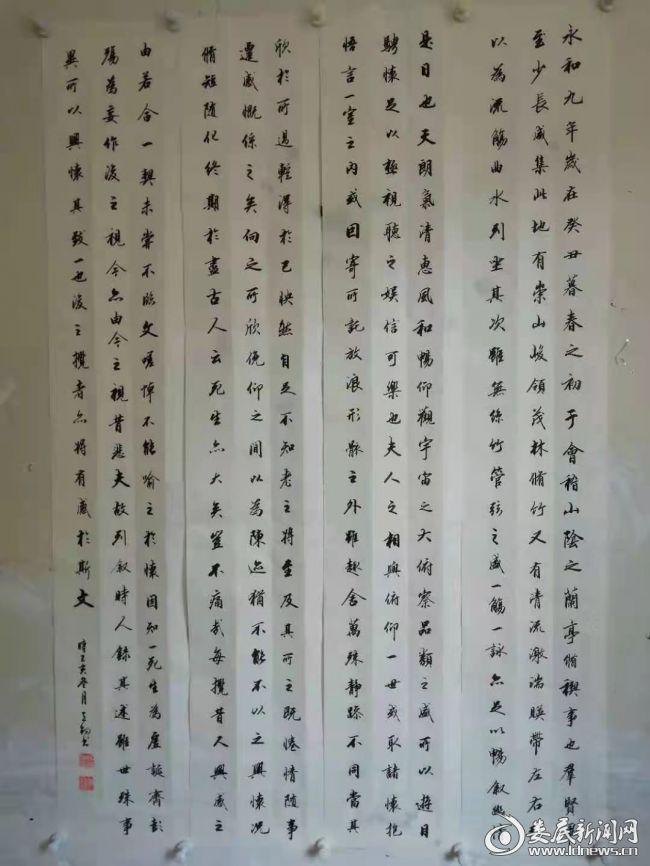 永和九年歲在癸丑暮春之初于會稽山陰之蘭亭脩禊事也羣賢畢
至少長咸集此地有崇山峻領茂林脩竹又有清流激湍暎帶左右
以為流觴曲水列坐其次雖無絲竹管弦之盛一觴一詠亦足以暢叙幽情
是日也天朗氣清惠風和暢仰觀宇宙之大俯察品類之盛所以遊目
騁懷足以極視聽之娛信可樂也夫人之相與俯仰一世或取諸懷抱
悟言一室之内或因寄所託放浪形骸之外雖趣舍萬殊靜躁不同當其
欣於所遇輕得於己怏然自足不知老之將至及其所之既惓情隨事
遷感慨係之矣向之所欣俛仰之間以為陳迹猶不能不以之興懷況
脩短随化終期於盡古人云死生亦大矣豈不痛哉每攬昔人興感之
由若合一契未嘗不臨文嗟悼不能喻之於懷固知一死生為虛誕齊彭
殤為妄作後之視今亦由今之視昔悲夫故列叙時人錄其述雖世殊事
異所以興懷其致一也後之攬者亦將有感於斯文
娄底新闻网
www.ldnews.cn